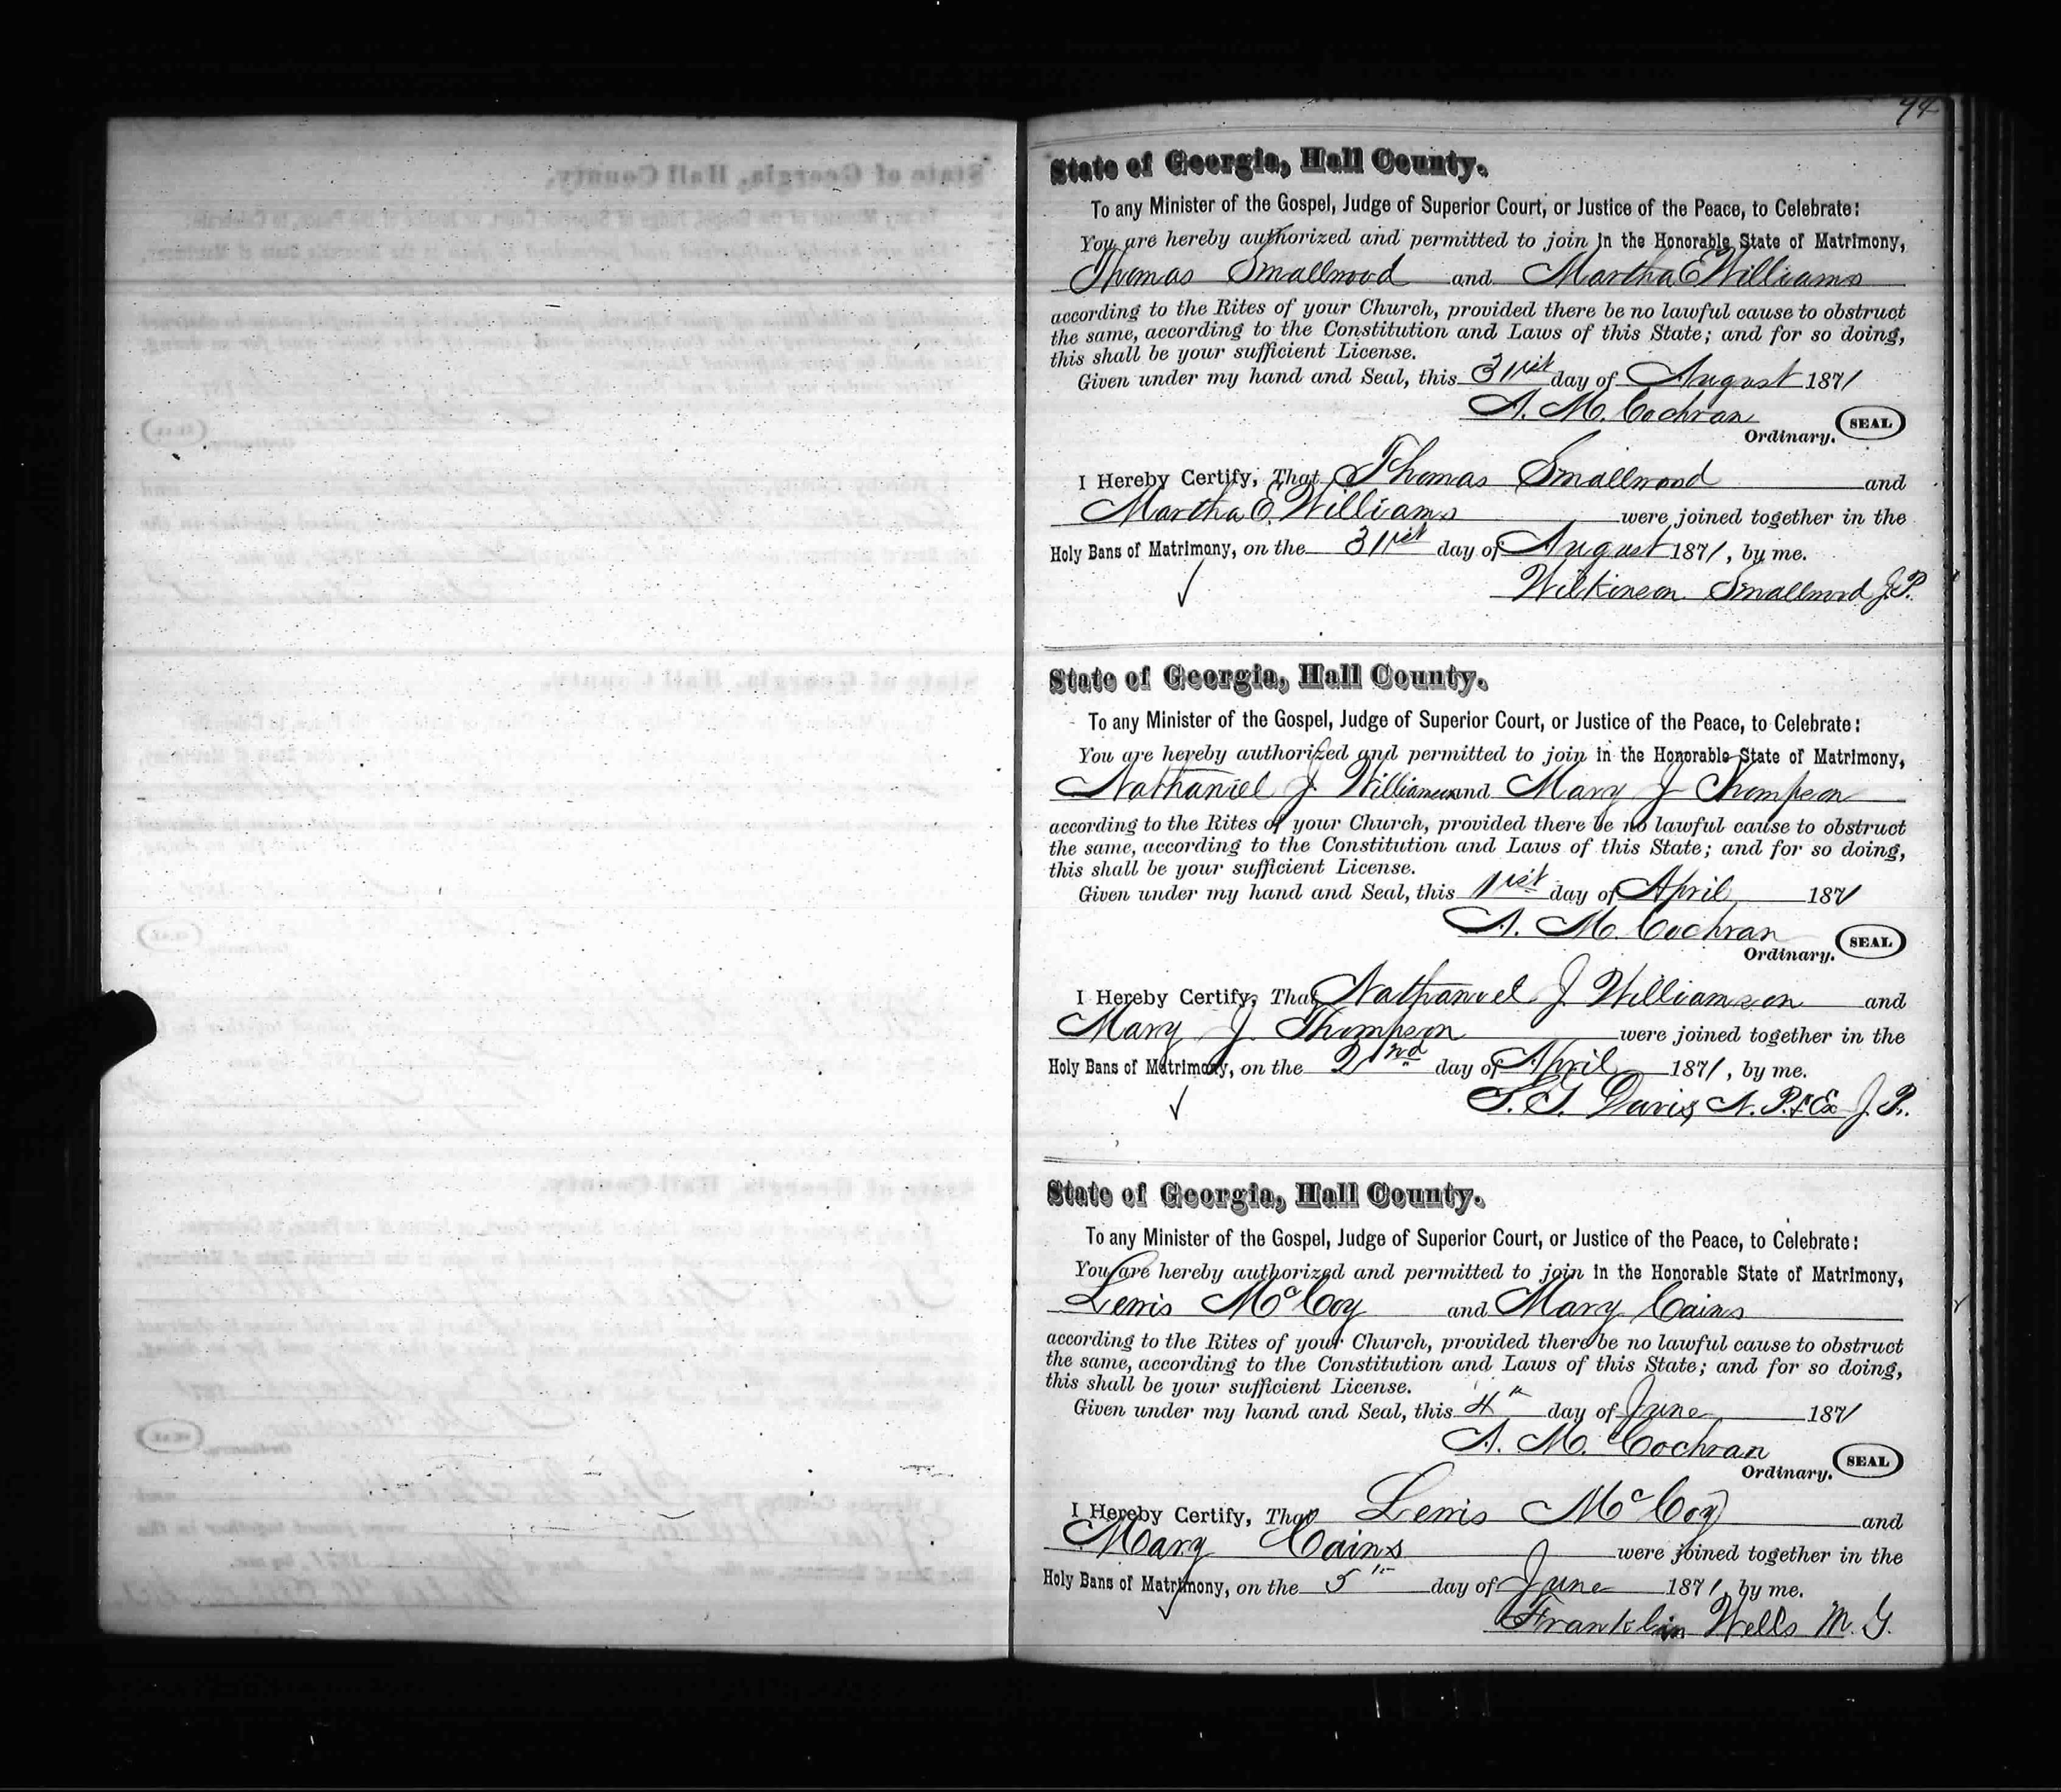 94
State of Georgia, Hall County.
To any Minister of the Gospel, Judge of Superior Court, or Justice of the Peace, to Celebrate:
You are hereby authorized and permitted to join in the Honorable State of Matrimony,
Thomas Smallwood and Martha E Williams
according to the Rites of your Church, provided there be no lawful cause to obstruct
the same, according to the Constitution and Laws of this State; and for so doing,
this shall be your sufficient License.
Given under my hand and Seal, this 31st day of August 1871
A. M. Cochran
Ordinary. SEAL
I Hereby Certify, That Thomas Smallwood and
Martha E. Williams were joined together in the
Holy Bans of Matrimony, on the 31st day of August 1871, by me.
Wilkinson Smallwood J.P.
State of Georgia, Hall County.
To any Minister of the Gospel, Judge of Superior Court, or Justice of the Peace, to Celebrate:
You are hereby authorized and permitted to join in the Honorable State of Matrimony,
Nathaniel J Williamson and Mary J Thompson
according to the Rites of your Church, provided there be no lawful cause to obstruct
the same, according to the Constitution and Laws of this State; and for so doing,
this shall be your sufficient License.
Given under my hand and Seal, this 1st day of April 1871
A. M. Cochran
Ordinary. SEAL
I Hereby Certify, That Nathaniel J Williamson and
Mary J Thompson were joined together in the
Holy Bans of Matrimony, on the 2nd day of April 1871, by me.
Davis, N. P. & Ex J. P.
State of Georgia, Hall County.
To any Minister of the Gospel, Judge of Superior Court, or Justice of the Peace, to Celebrate:
You are hereby authorized and permitted to join in the Honorable State of Matrimony,
Lewis McCoy and Mary Cains
according to the Rites of your Church, provided there be no lawful cause to obstruct
the same, according to the Constitution and Laws of this State; and for so doing,
this shall be your sufficient License.
Given under my hand and Seal, this 4th day of June 1871
A. M. Cochran
Ordinary. SEAL
I Hereby Certify, That Lewis McCoy and
Mary Cains were joined together in the
Holy Bans of Matrimony, on the 5th day of June 1871, by me.
Franklin Wells M. G.